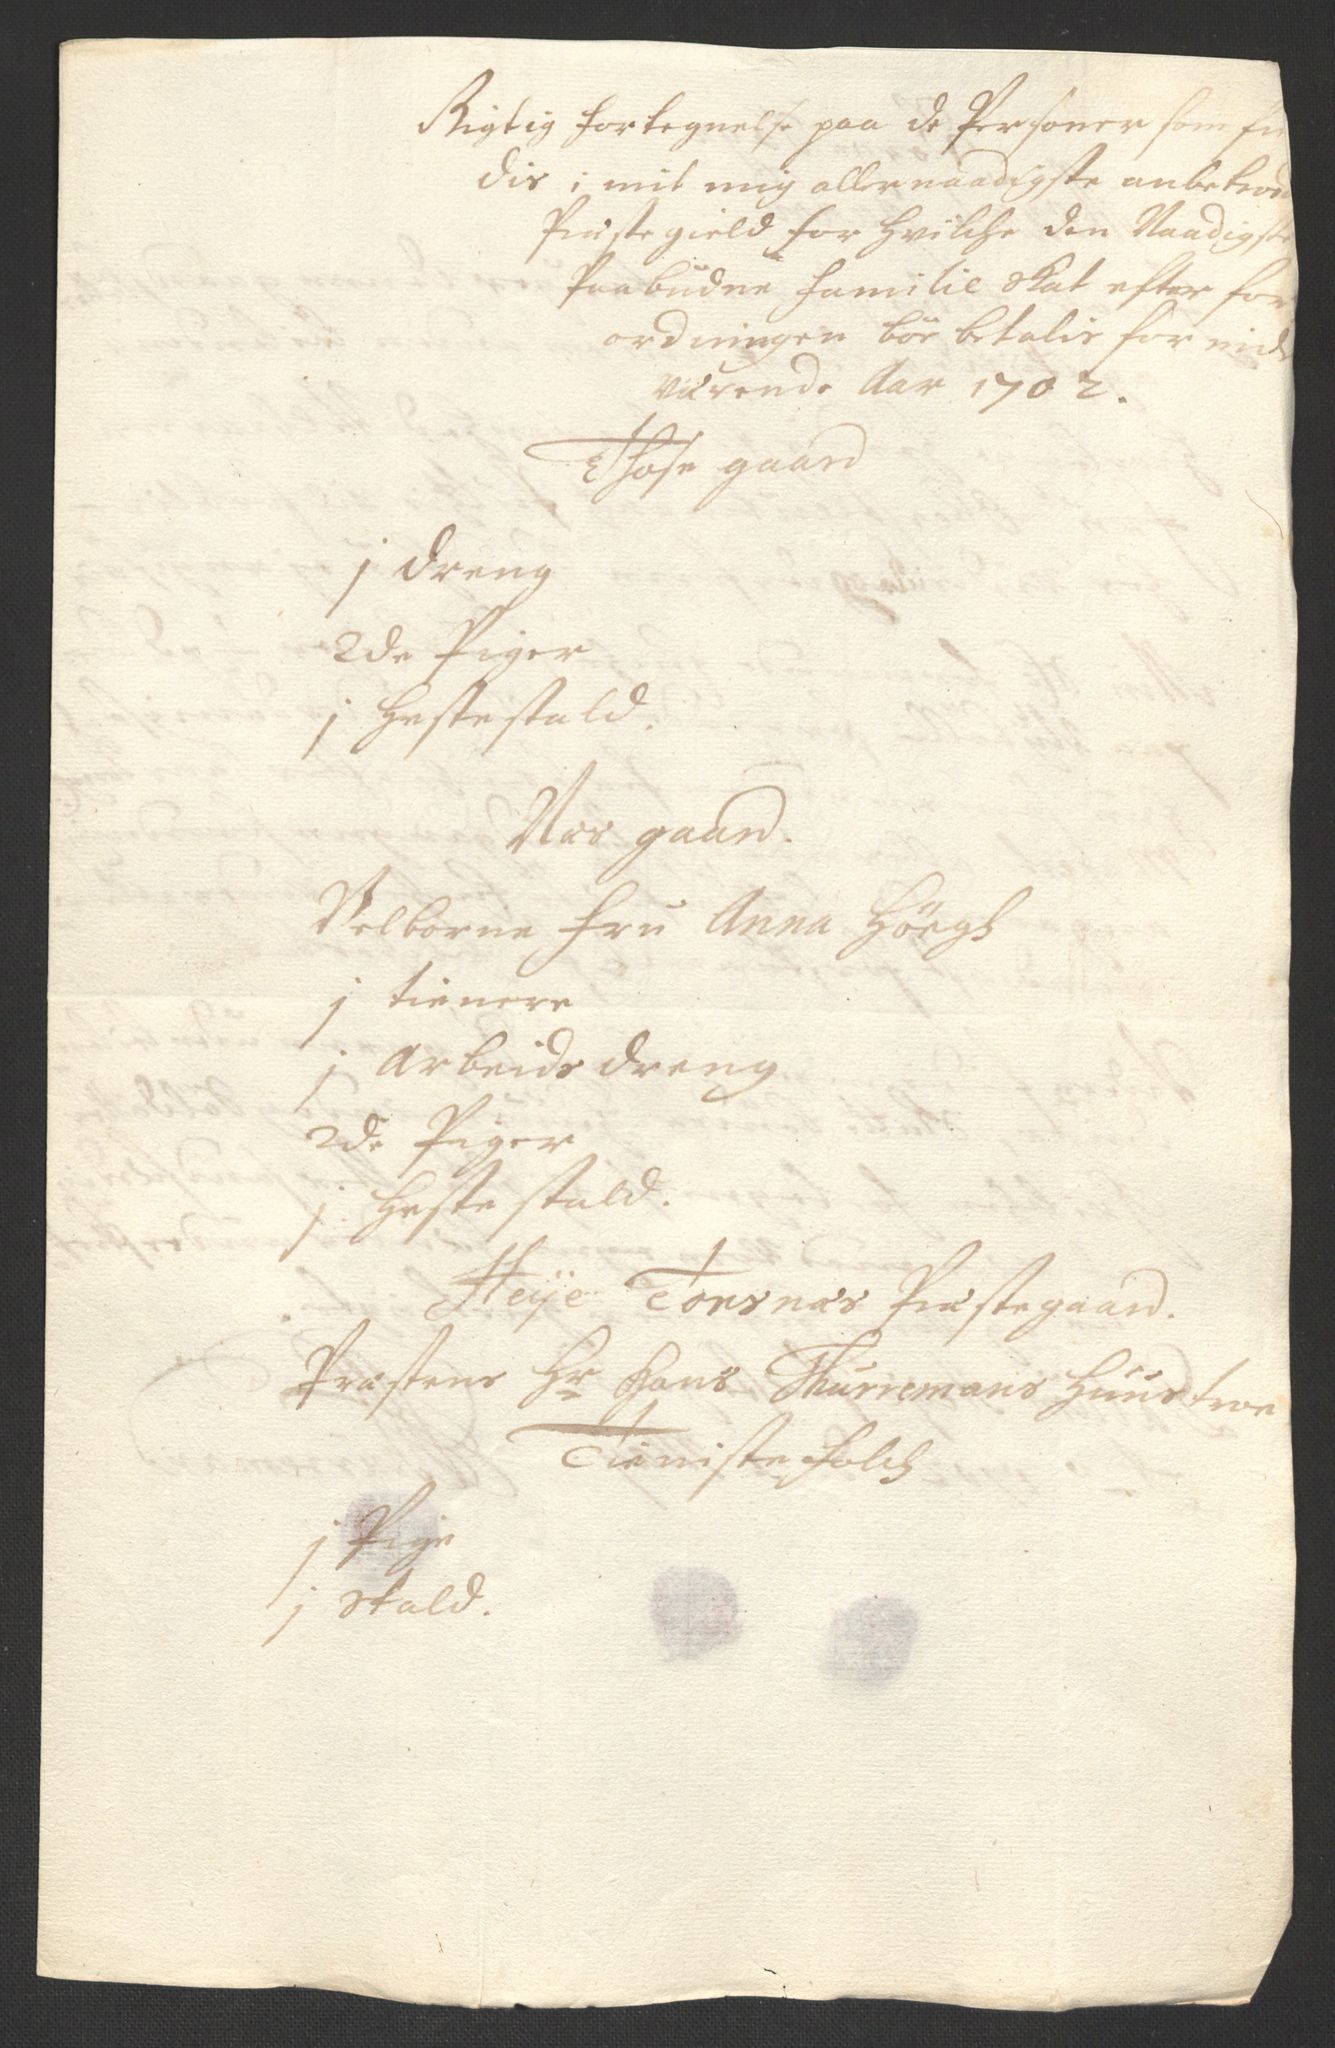 Rigtig fortegnelse paa de Personer som fin
dis i mit mig allernaadigste anbetroed
Præstegield for hvilche den Naadigste
Paabudne familie Skat efter for
ordningen bör betalis for nid
værende Aar 1702.
Those gaard
j dreng
2de Piger
j Hestestald.
Næs gaard.
Velborne fru Anna Höegh
j tienere
j Arbeids dreng
2de Piger
j Heste stald.
Torsnæs Præstegaard.
Præstens Hr Hans Thurremans Huustroe
Tieniste folch
j Pige
j Stald.